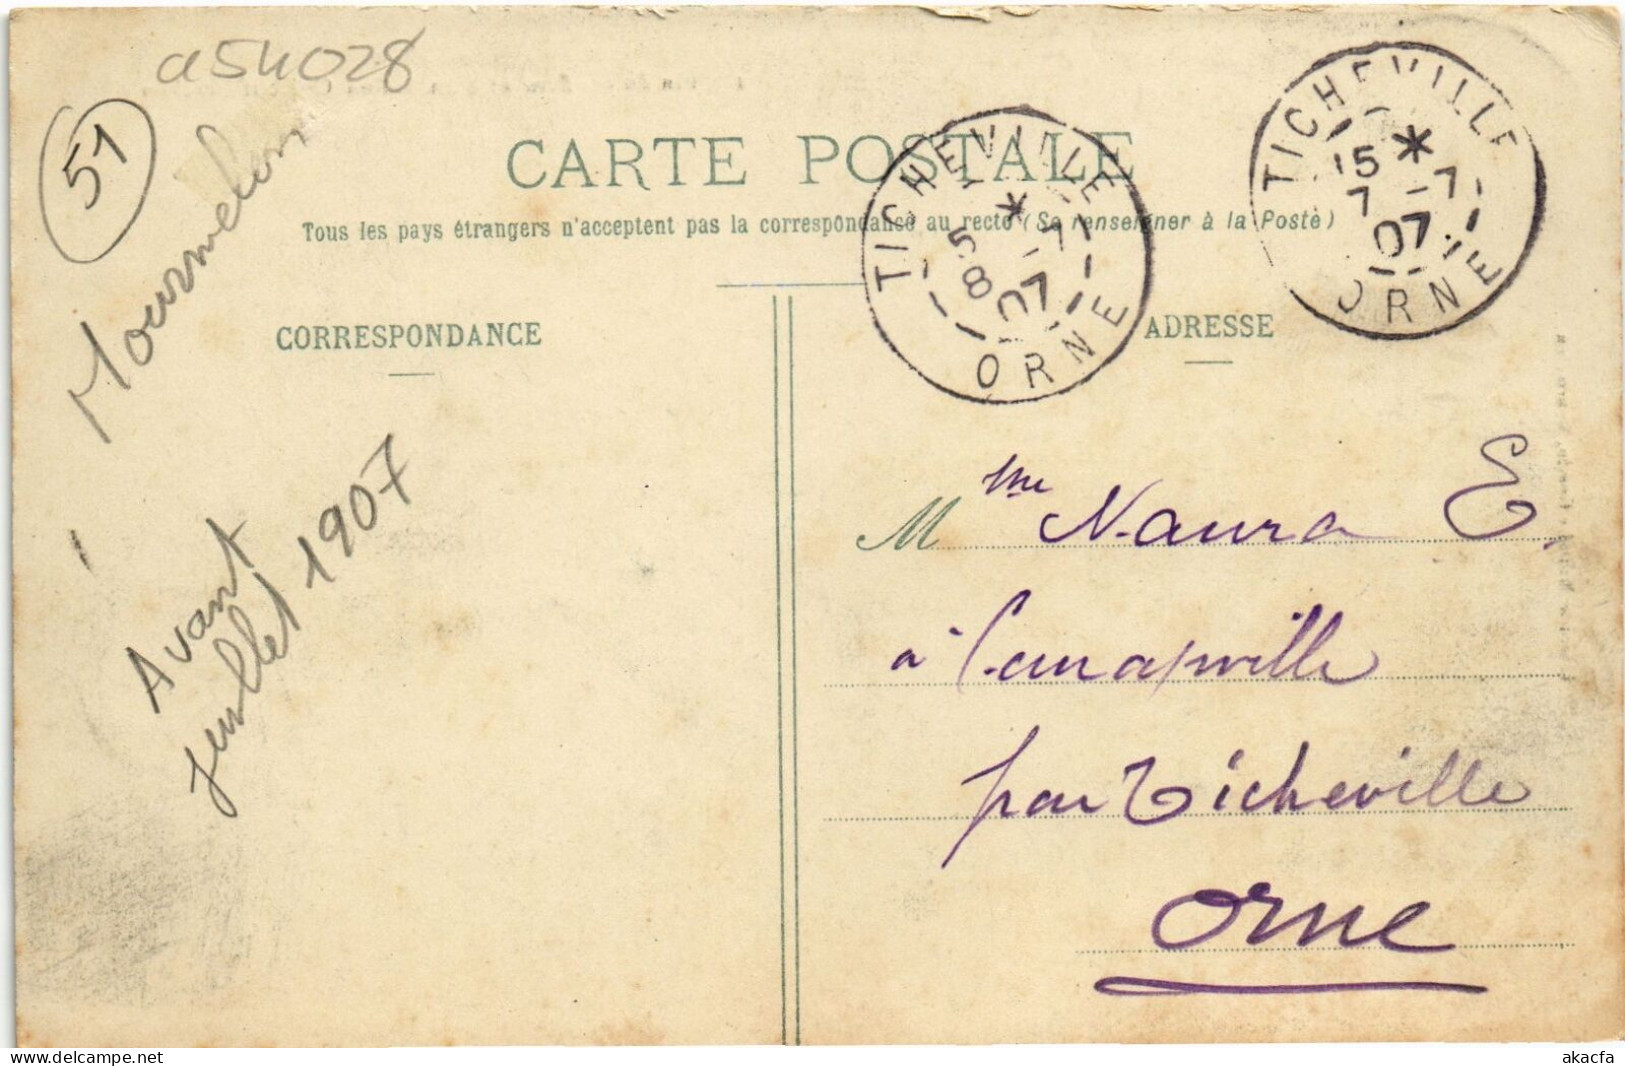 a54028
51
Mourmelon
CARTE POSTALE
Tous les pays étrangers n'acceptent pas la correspondance au recto (Se renseigner à la Poste)
TICHEVILLE
15 *
7 -7
07
ORNE
TICHEVILLE
5 *
8 -7
07
ORNE
CORRESPONDANCE
ADRESSE
Avant
juillet 1907
Mme Naura E.
à Canapville
par Ticheville
Orne
delcampe.net
akacfa